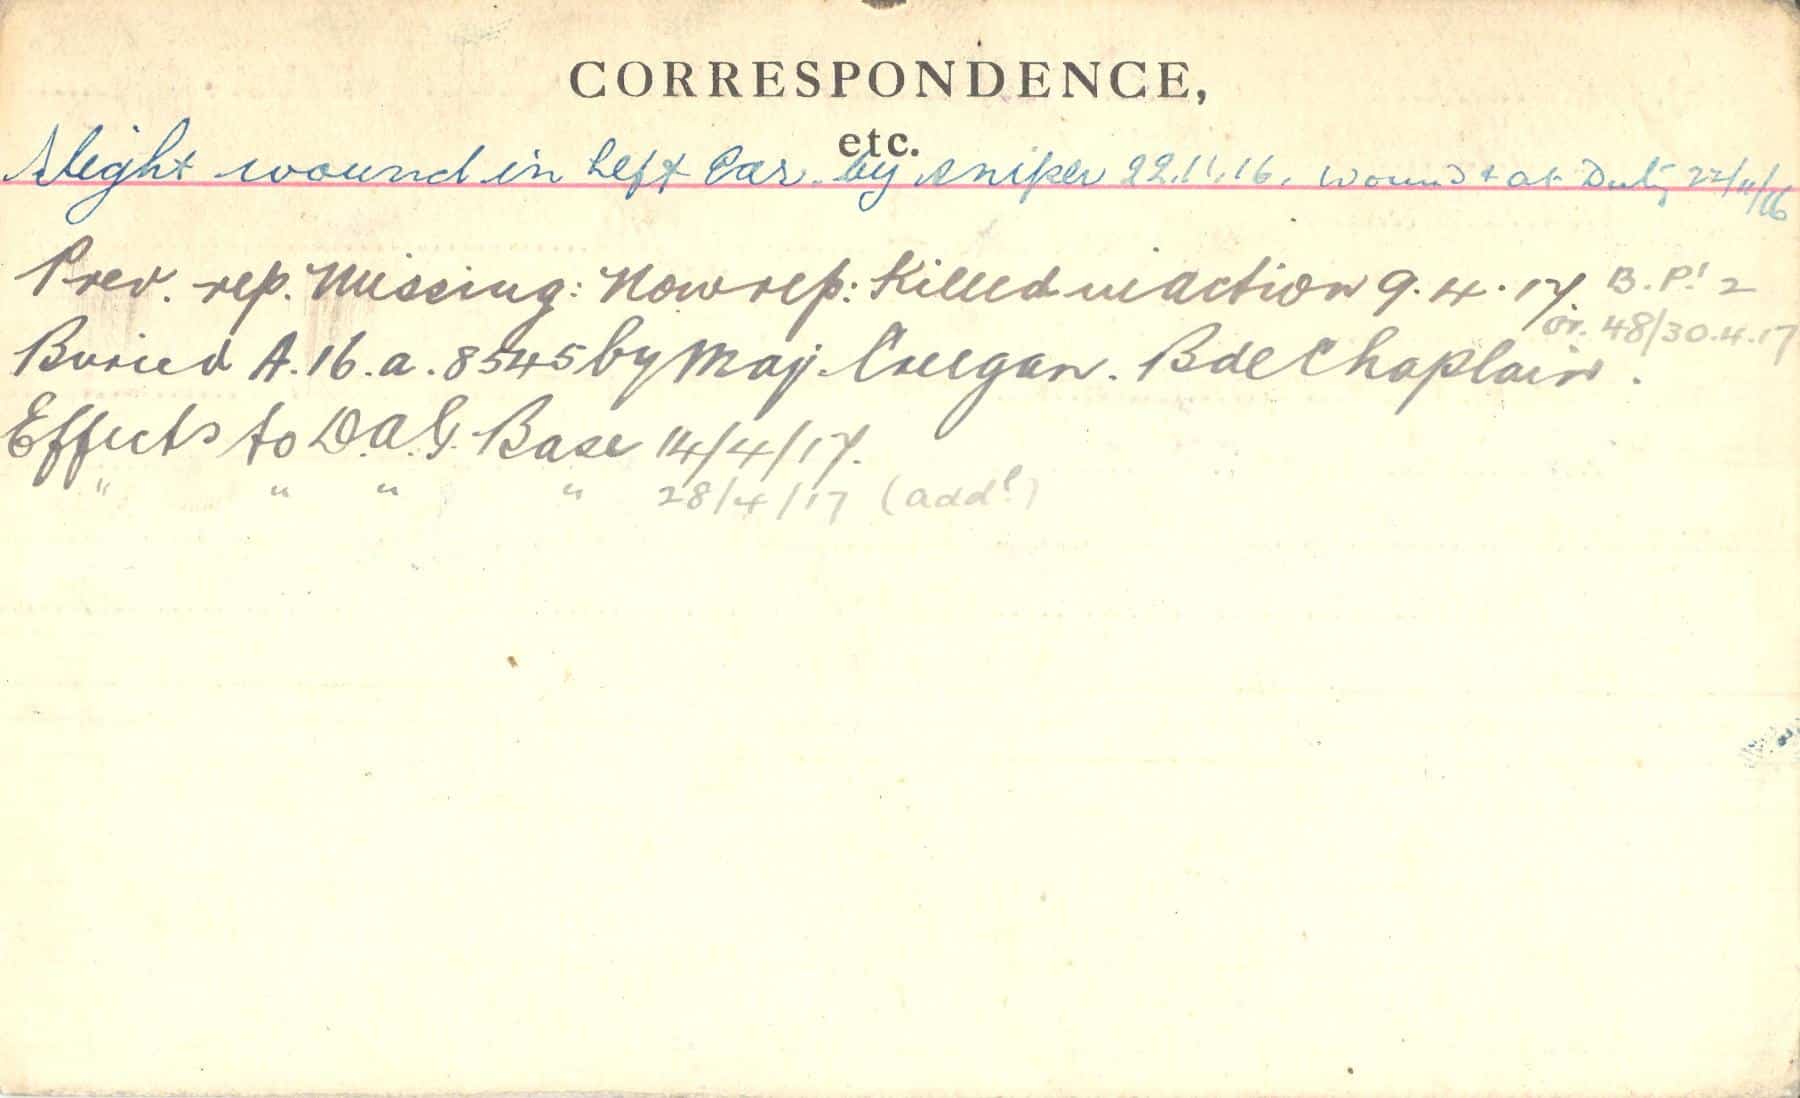 CORRESPONDENCE,
etc.
Slight wound in Left Ear. by sniper 22.11.16. Wound & at Duty 22/11/16
Prev. rep. Missing: Now rep: Killed in action 9.4.17. B. Pt 2
or. 48/30.4.17
Buried A.16.a.8545 by Maj. Creegan. Bde Chaplain.
Effects to D.A.G. Base 14/4/17.
" " " " 28/4/17 (addl)